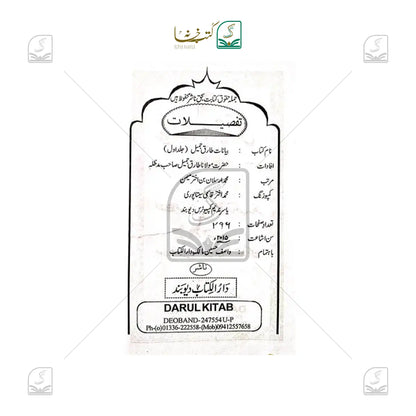 کتب خانہ
جملہ حقوق کتابت بحق ناشر محفوظ ہیں
تفصیلات
نام کتاب : بیانات طارق جمیل (جلد اول)
افادات : حضرت مولانا طارق جمیل صاحب مدظلہ
مرتب : محمد ارسلان بن اختر میمن
کمپوزنگ : محمد اختر قاسمی سیتاپوری
یاسر ندیم کمپیوٹرس دیوبند
تعداد صفحات : ۲۹۶
سن اشاعت : ۲۰۱۵ء
باہتمام : واصف حسین مالک دارالکتاب
ناشر
دارالکتاب دیوبند
DARUL KITAB
DEOBAND-247554 U-P
Ph-(o)01336-222558-(Mob)09412557658